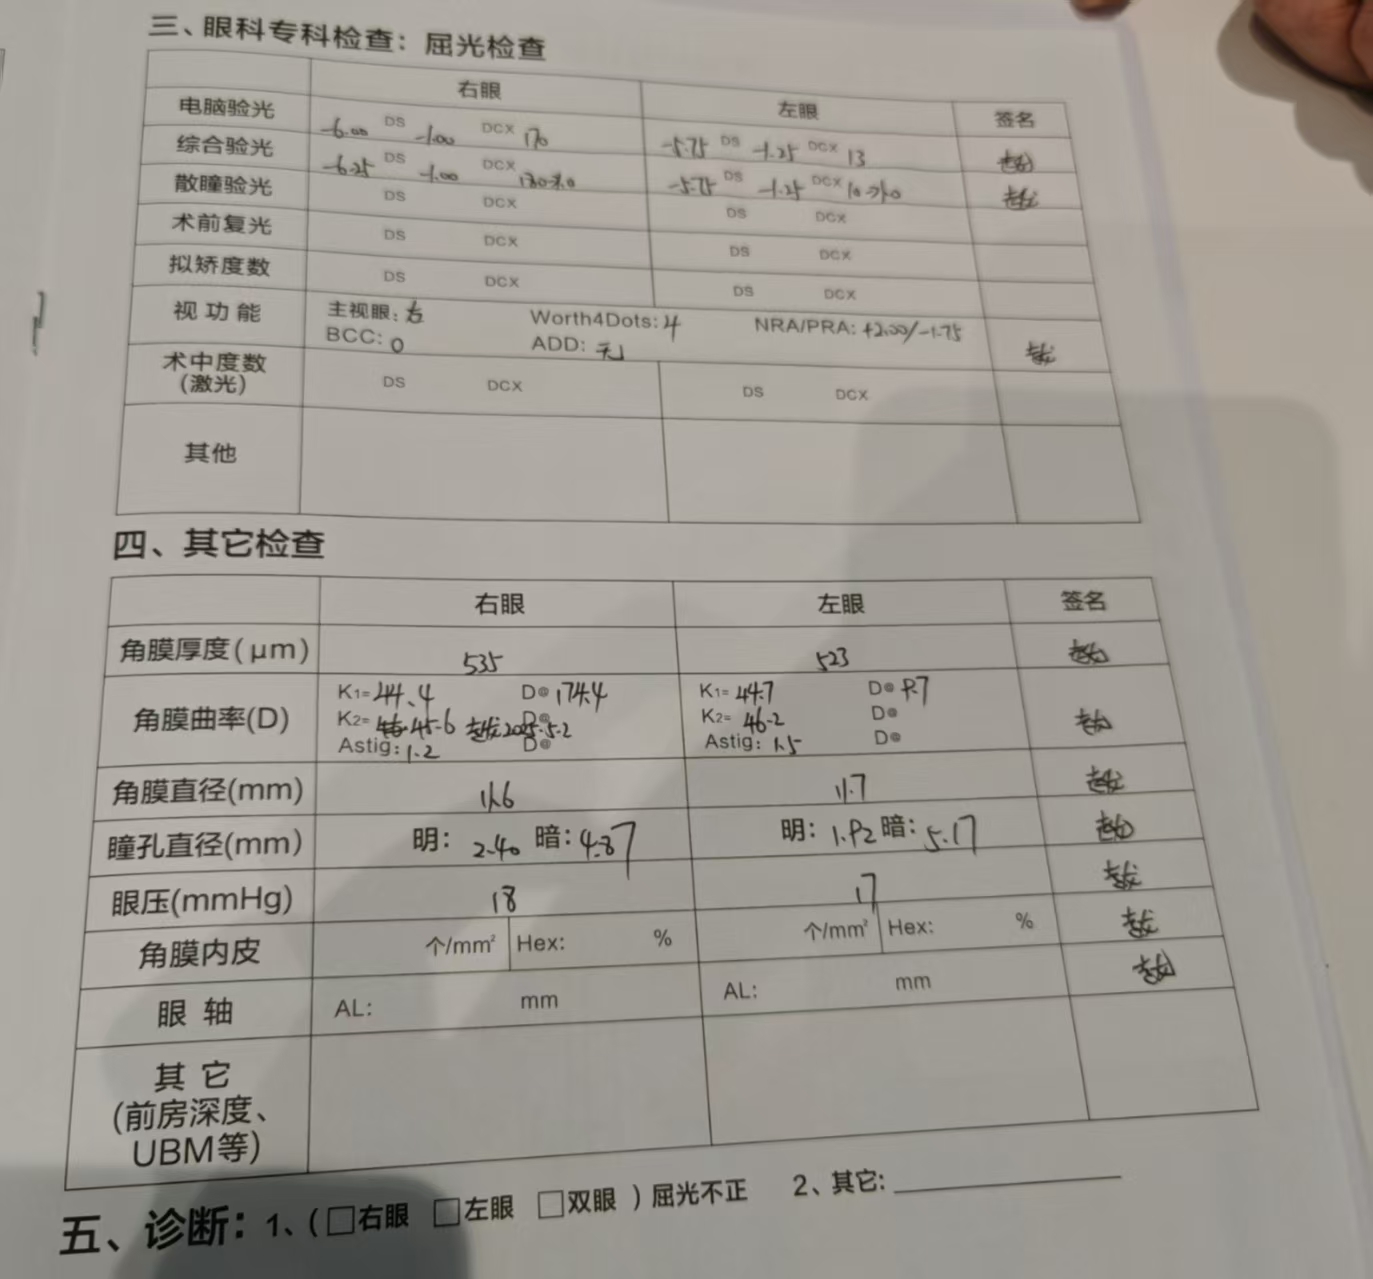 三、眼科专科检查：屈光检查
右眼 左眼 签名
电脑验光 -6.00 DS -1.00 DCX 170 -5.75 DS -1.25 DCX 13
综合验光 -6.25 DS -1.00 DCX -5.75 DS -1.25 DCX
散瞳验光 DS DCX DS DCX
术前复光 DS DCX DS DCX
拟矫度数 DS DCX DS DCX
视功能 主视眼：右 Worth4Dots: 4 NRA/PRA: +2.00/-1.75
BCC: 0 ADD: 无
术中度数 DS DCX DS DCX
(激光)
其他
四、其它检查
右眼 左眼 签名
角膜厚度(μm) 535 523
角膜曲率(D) K1= 44.4 D@ 174.4 K1= 44.7 D@ 9.7
K2= 45.6 D@ 2025.5.2 K2= 46.2 D@
Astig: 1.2 D@ Astig: 1.5 D@
角膜直径(mm) 11.6 11.7
瞳孔直径(mm) 明： 2.40 暗： 4.87 明： 1.92 暗： 5.17
眼压(mmHg) 18 17
角膜内皮 个/mm² Hex: % 个/mm² Hex: %
眼轴 AL: mm AL: mm
其它
(前房深度、
UBM等)
五、诊断：1、(□右眼 □左眼 □双眼 ) 屈光不正 2、其它: